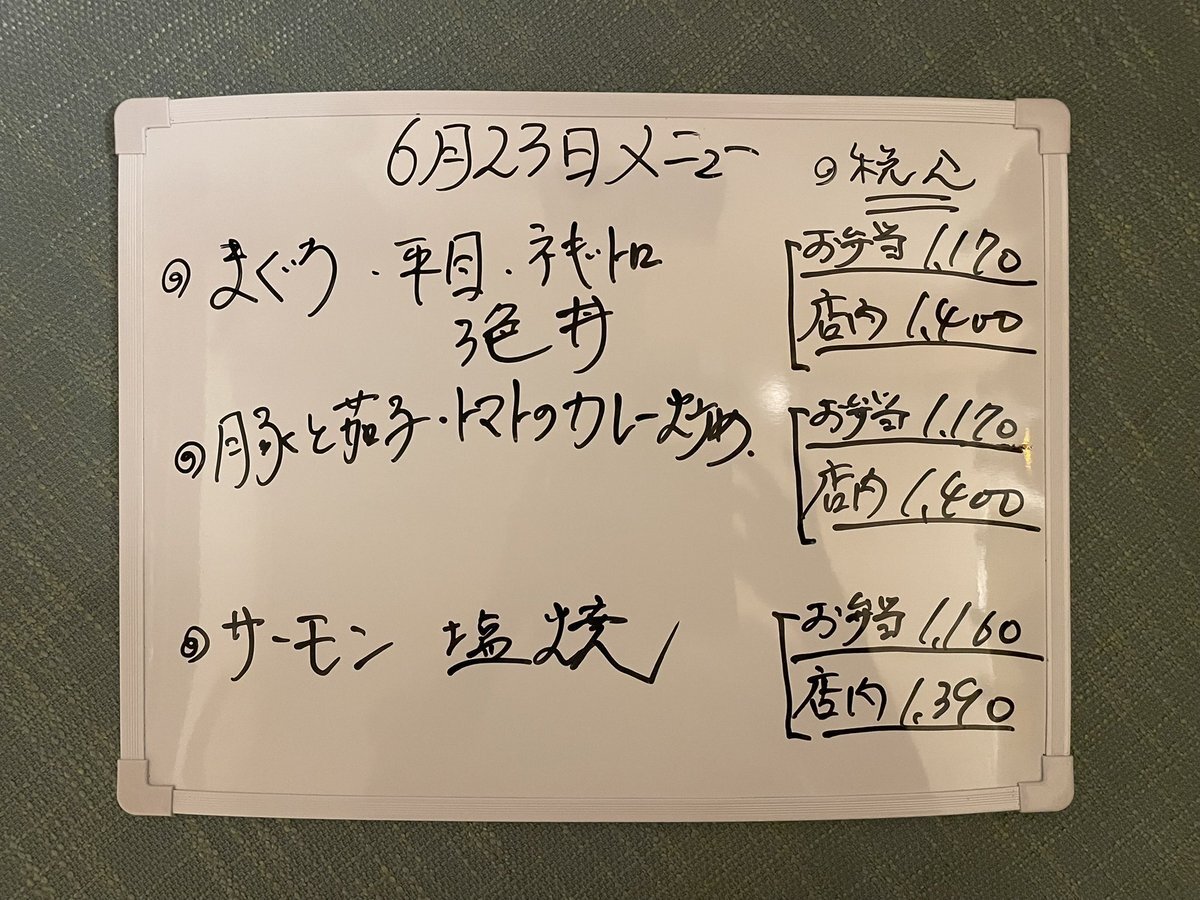 6月23日メニュー
◎税込
◎まぐろ・平目・ネギトロ
3色丼
お弁当 1,170
店内 1,400
◎豚と茄子・トマトのカレー炒め
お弁当 1,170
店内 1,400
◎サーモン 塩焼
お弁当 1,160
店内 1,390